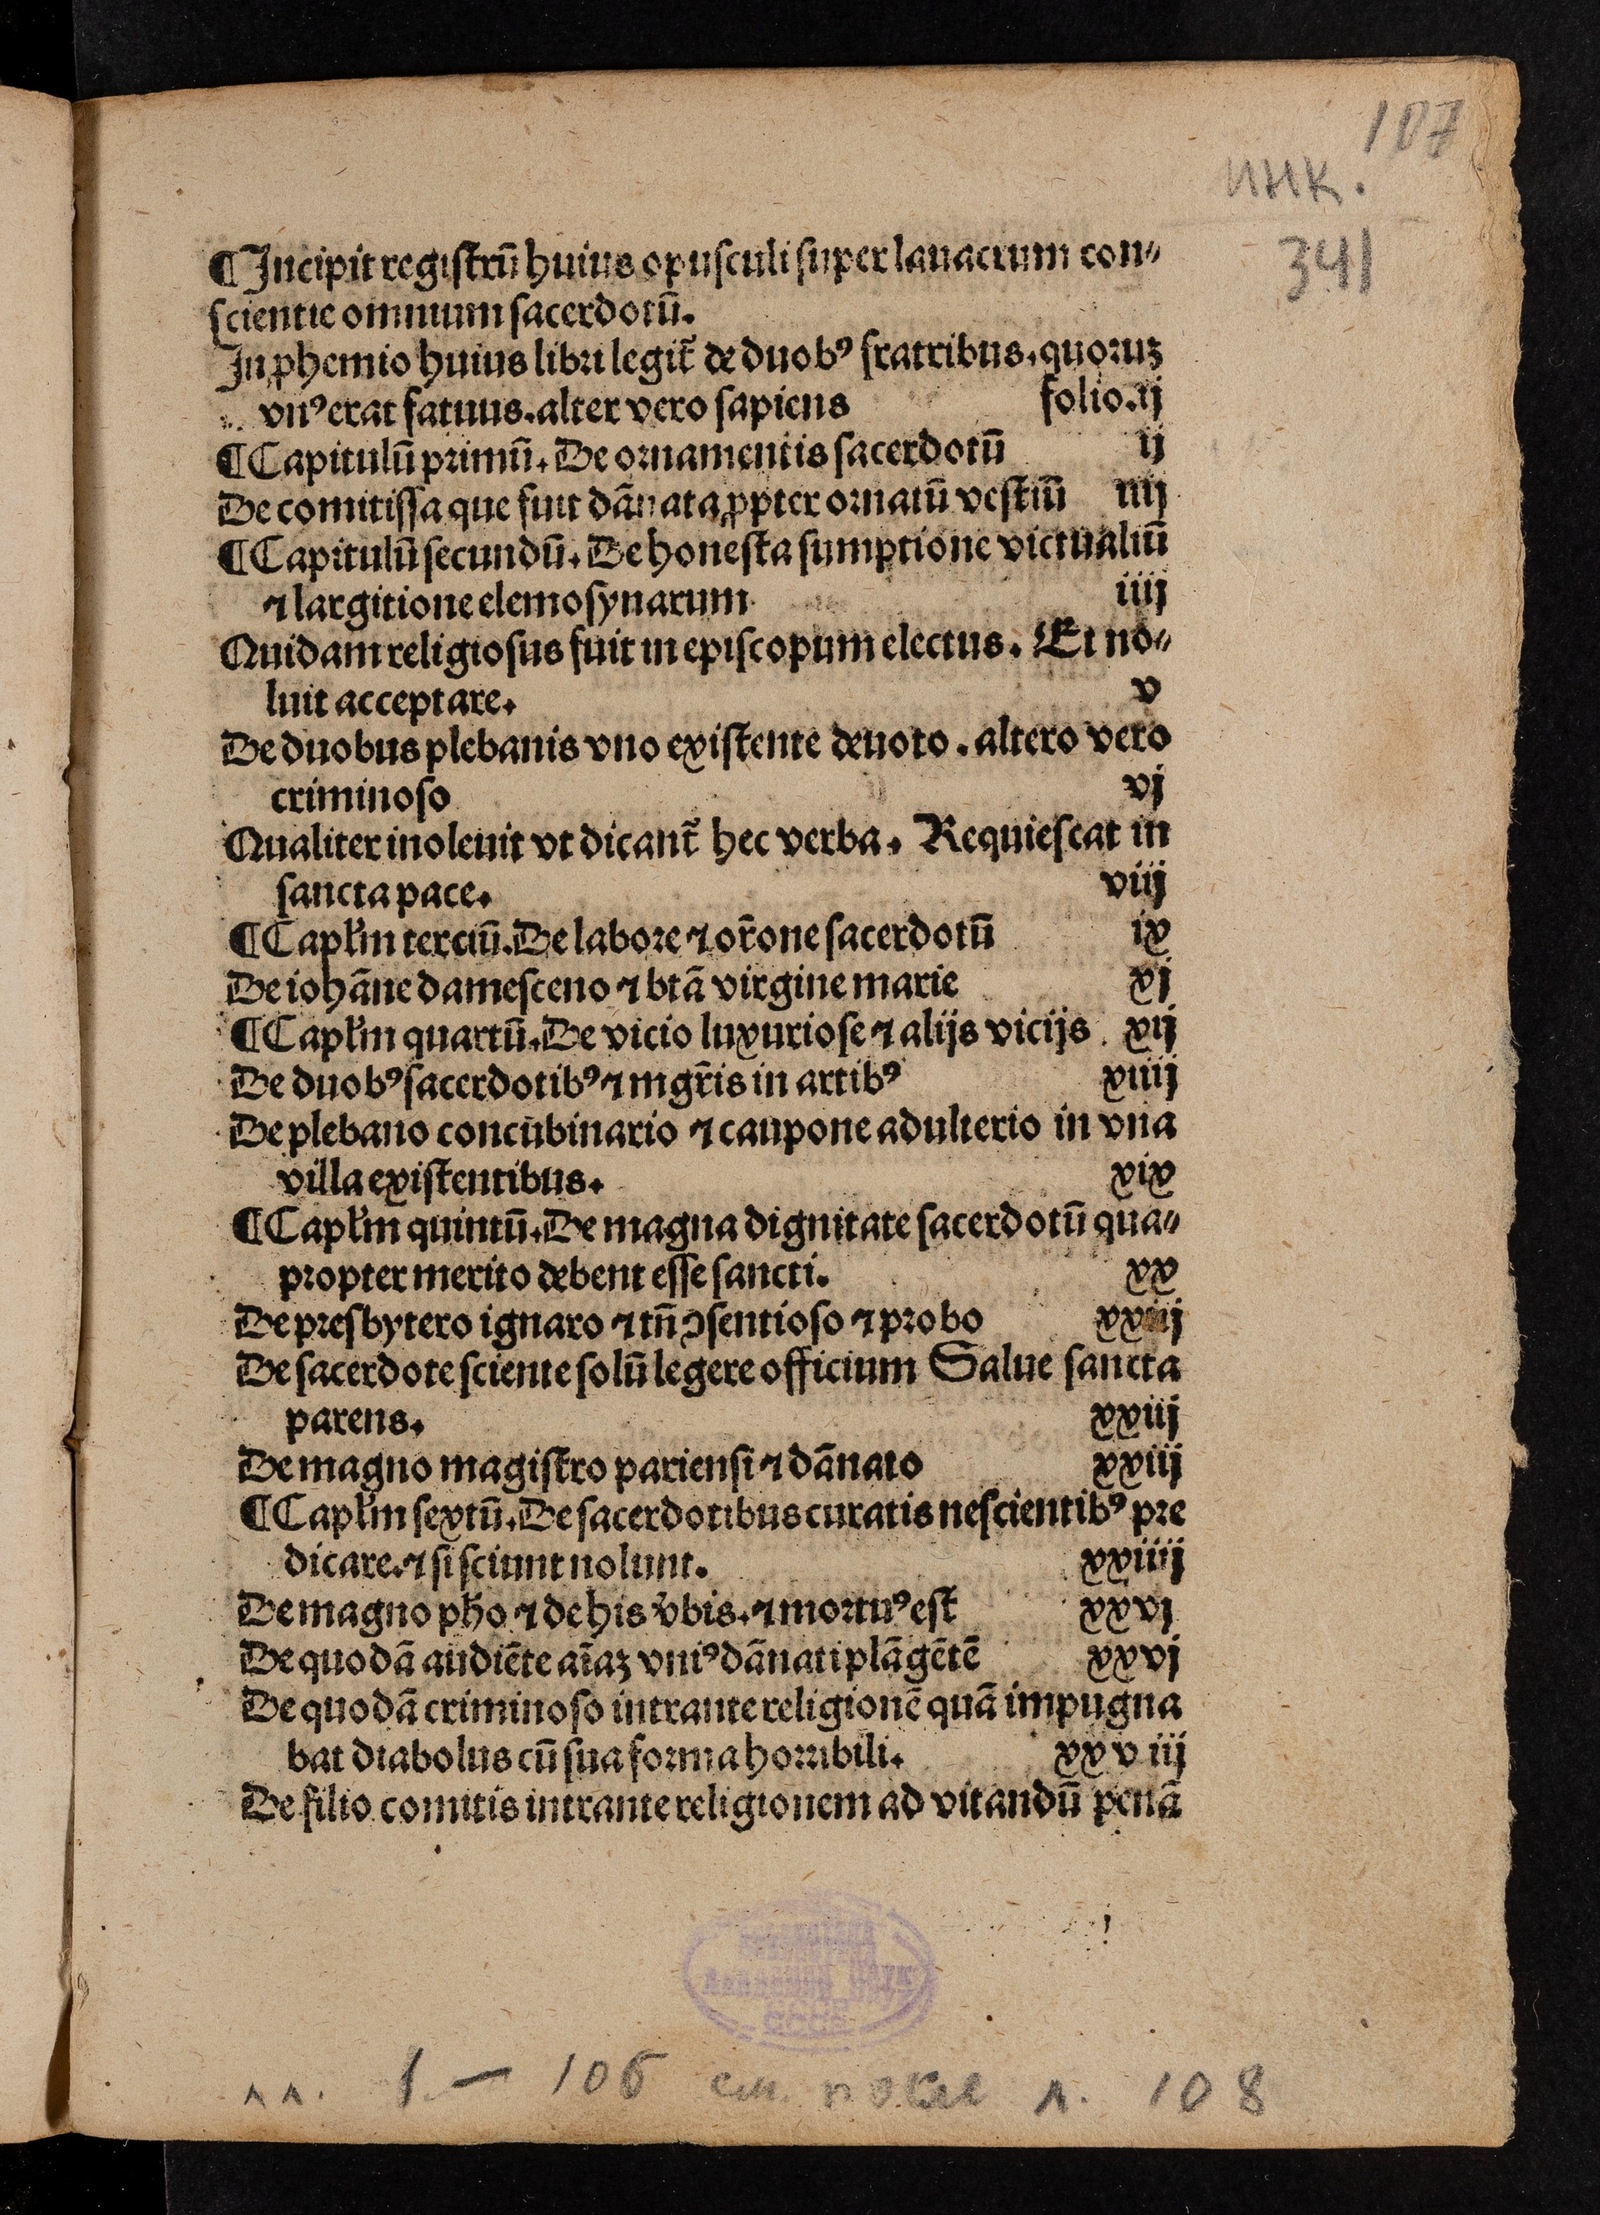 107
инк.
341
¶Incipit registrū huius opusculi super lauacrum con⸗
scientie omnium sacerdotū.
In ꝓhemio huius libri legit̃ de duobꝰ fratribus. quoruꝫ
vnꝰ erat fatuus. alter vero sapiens folio. ij
¶Capitulū primū. De ornamentis sacerdotū ij
De comitissa que fuit dānata ꝓpter ornatū vestiū iiij
¶Capitulū secundū. De honesta sumptione victualiū
⁊ largitione elemosynarum iiij
Quidam religiosus fuit in episcopum electus. Et no⸗
luit acceptare. v
De duobus plebanis vno existente deuoto. altero vero
criminoso vj
Qualiter inoleuit vt dicant̃ hec verba. Requiescat in
sancta pace. viij
¶Caplm̄ terciū. De labore ⁊ or̄one sacerdotū ix
De iohāne damesceno ⁊ btā virgine marie xj
¶Caplm̄ quartū. De vicio luxuriose ⁊ alijs vicijs xij
De duobꝰ sacerdotibꝰ ⁊ mgr̄is in artibꝰ xiiij
De plebano concubinario ⁊ caupone adulterio in vna
villa existentibus. xix
¶Caplm̄ quintū. De magna dignitate sacerdotū qua⸗
propter merito debent esse sancti. xx
De presbytero ignaro ⁊ tn̄ ꝯsentioso ⁊ probo xxiij
De sacerdote sciente solū legere officium Salue sancta
parens. xxiij
De magno magistro pariensi ⁊ dānato xxiij
¶Caplm̄ sextū. De sacerdotibus curatis nescientibꝰ pre
dicare. ⁊ si sciunt nolunt. xxiiij
De magno pho ⁊ de his v̄bis. ⁊ mortuꝰ est xxvj
De quodā audiēte aīaꝫ vniꝰ dānati plāgētē xxvj
De quodā criminoso intrante religionē quā impugna
bat diabolus cū sua forma horribili. xxv iij
De filio comitis intrante religionem ad vitandū penā
Академии Наук
СССР
лл. 1 — 106 см. после л. 108